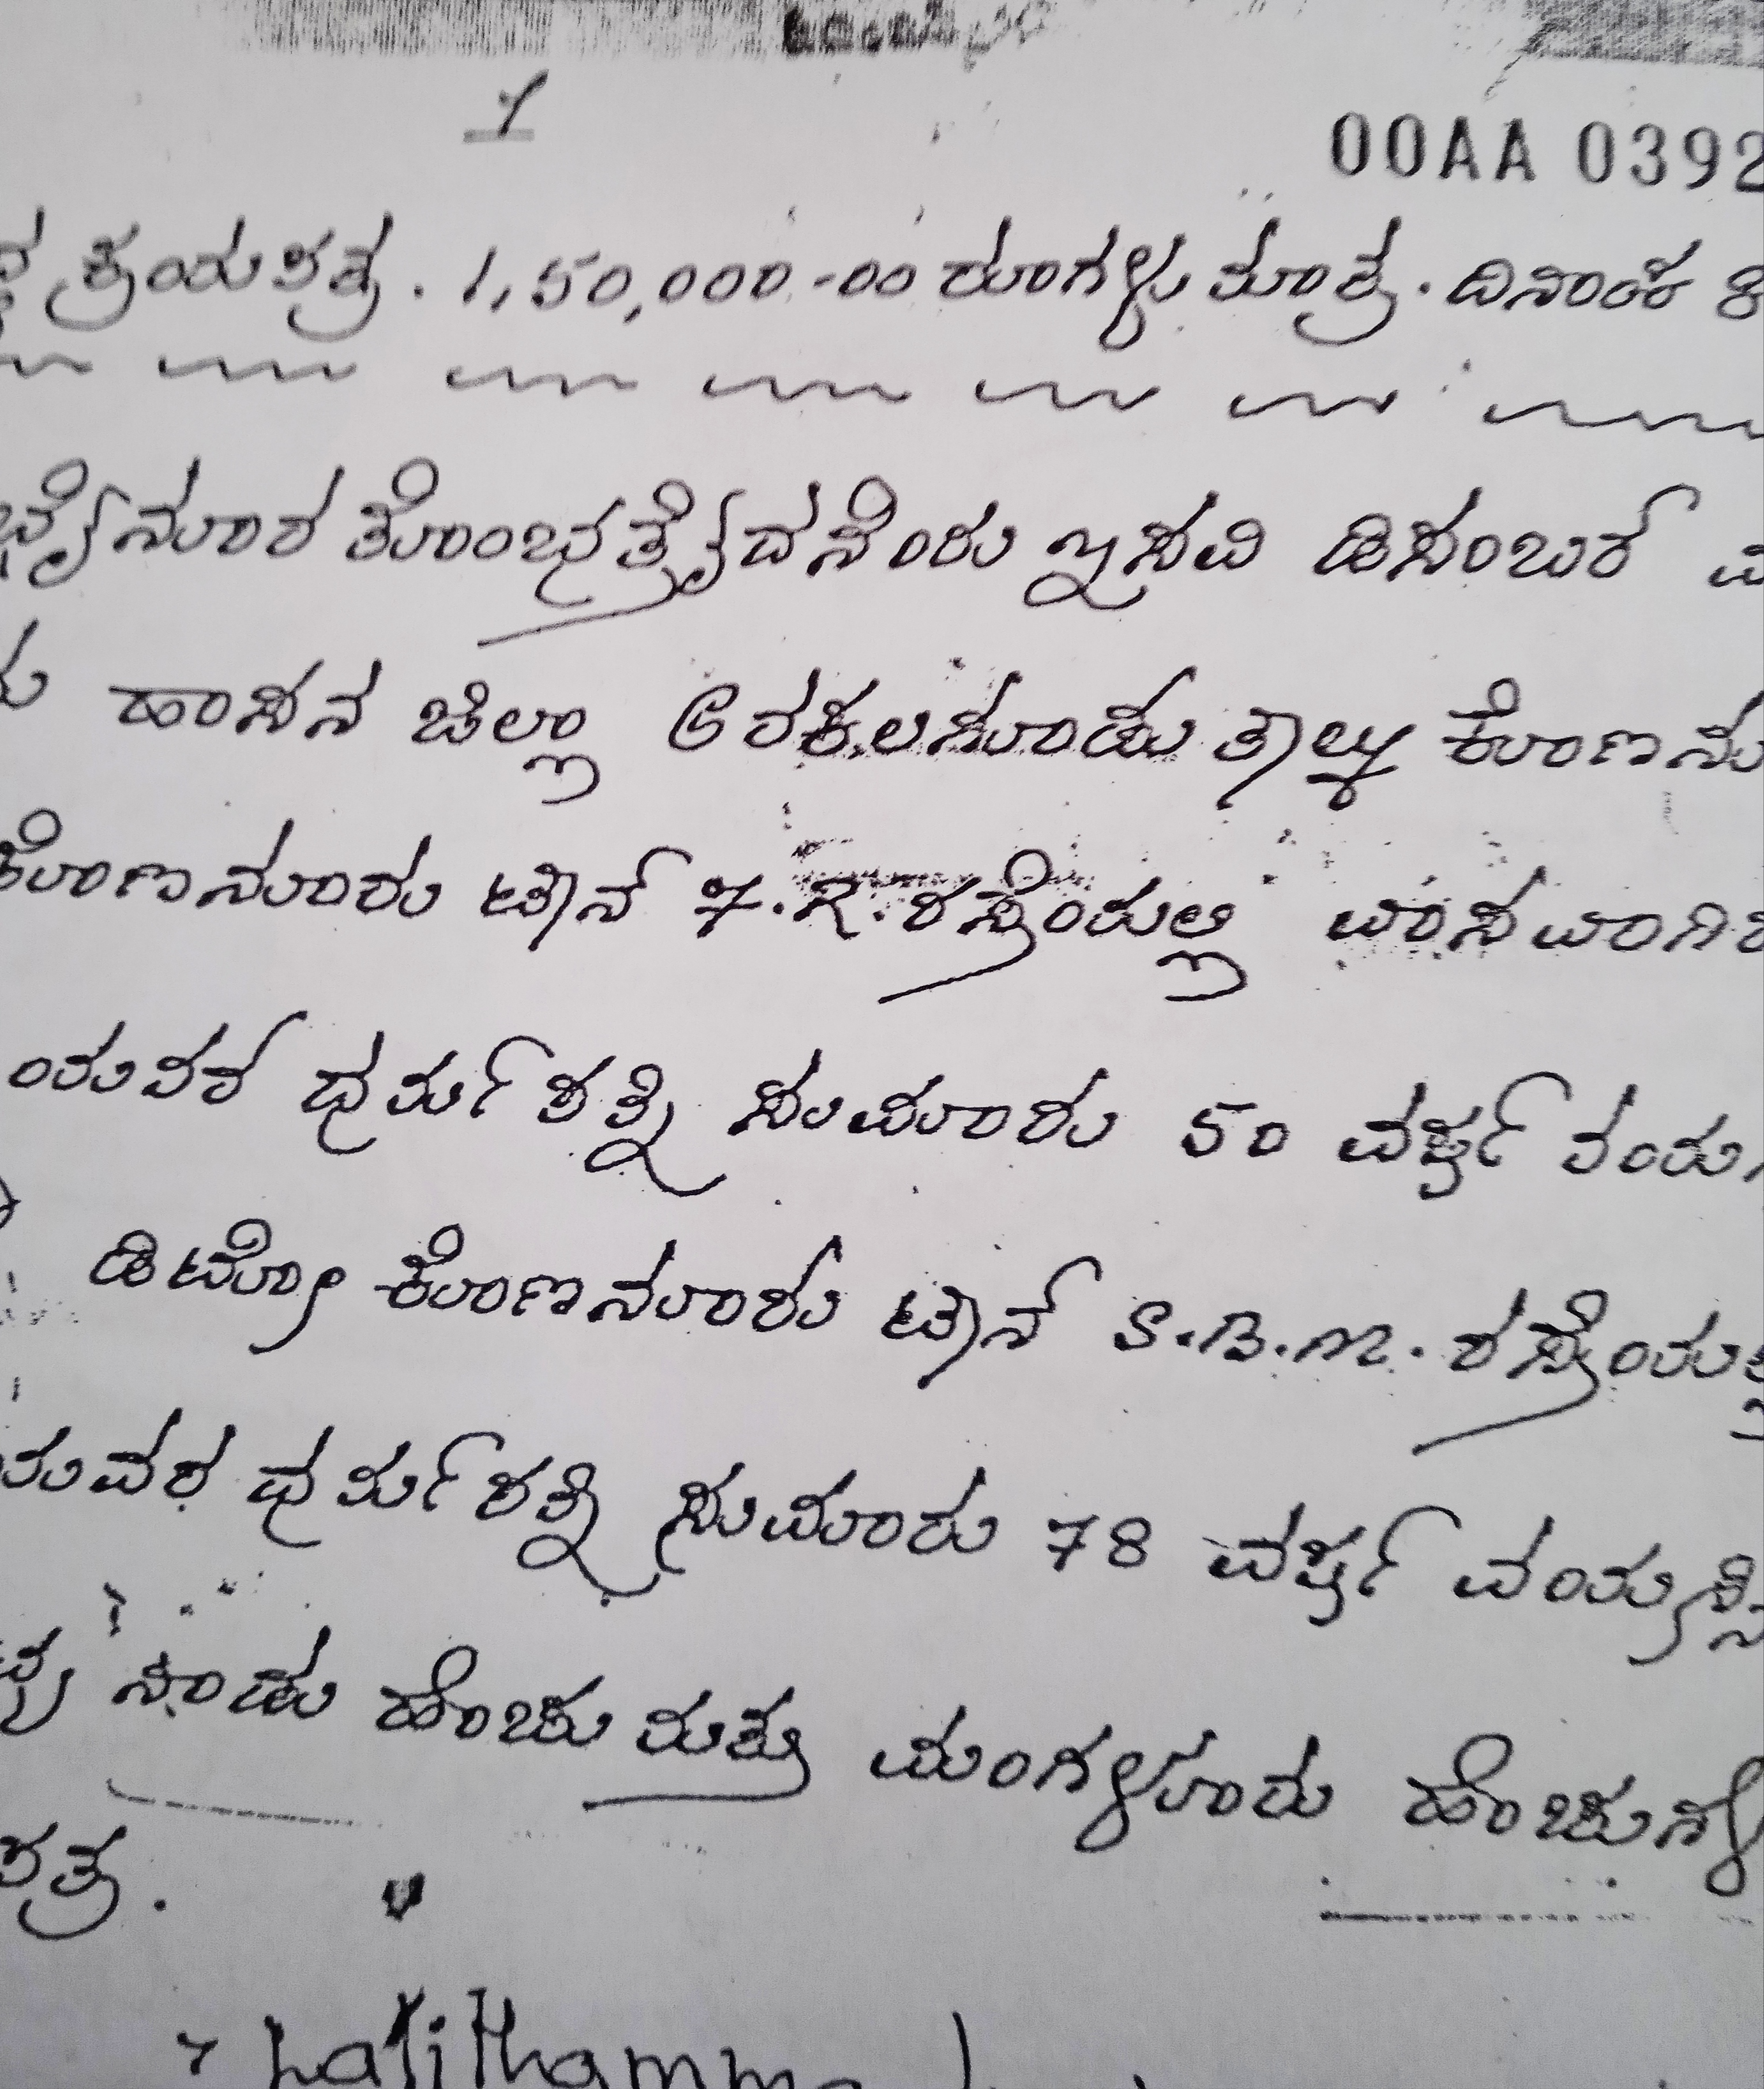 1
00AA 0392
ಕ್ರಯಪತ್ರ. 1,50,000-00 ರೂಗಳು ಮಾತ್ರ. ದಿನಾಂಕ 8
ನೂರ ತೊಂಭತ್ತೈದನೆಂರು ಇಸವಿ ಡಿಸಂಬರ್
ಹಾಸನ ಜಿಲ್ಲಾ ಅರಕಲಗೂಡು ತಾಲ್ಲೂಕು ಕೊಣನೂ
ಕೊಣನೂರು ಟೌನ್ 7.R. ರಸ್ತೆಯಲ್ಲಿ ವಾಸವಾಗಿರ
ಯವರ ಧರ್ಮಪತ್ನಿ ಸುಮಾರು 50 ವರ್ಷ ವಯ
ಡಿಟ್ಟೋ ಕೊಣನೂರು ಟೌನ್ S.B.M. ರಸ್ತೆಯಲ್ಲಿ
ಯವರ ಧರ್ಮಪತ್ನಿ ಸುಮಾರು 78 ವರ್ಷ ವಯಸ್ಸಿನ
ನಾಡು ಹೆಂಚು ಮತ್ತು ಮಂಗಳೂರು ಹೆಂಚುಗಳ
ಪತ್ರ.
Lalithamma